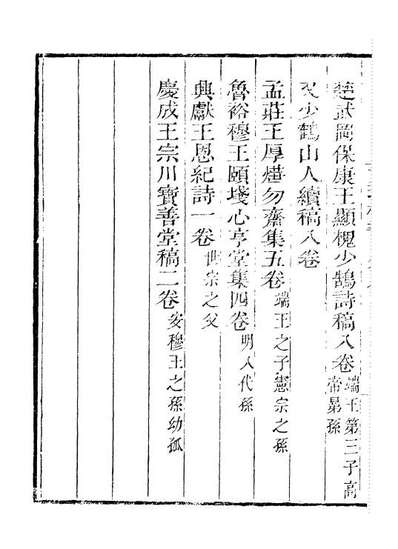 楚武岡保康王顯槐少鶴詩稿八卷 端王第三子高
帝晜孫
又少鶴山人續稿八卷
益莊王厚燁勿齋集五卷 端王之子憲宗之孫
魯裕穆王頤堟心亨堂集四卷 明八代孫
興獻王恩紀詩一卷 世宗之父
慶成王宗川寶善堂稿二卷 安穆王之孫幼孤